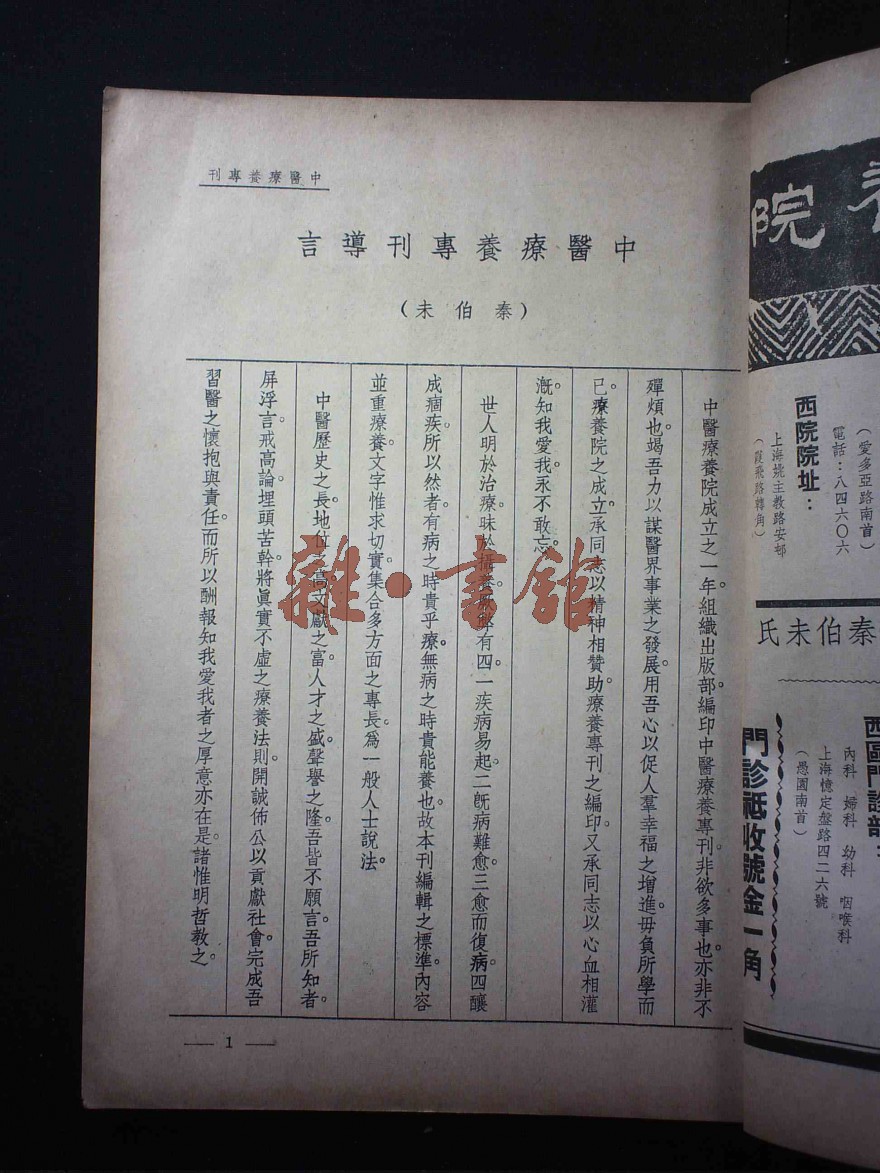 中醫療養專刊
中醫療養專刊導言
（秦伯未）
中醫療養院成立之一年。組織出版部編印中醫療養專刊。非欲多事也。亦非不
殫煩也。竭吾力以謀醫界事業之發展。用吾心以促人羣幸福之增進。毋負所學而
已。療養院之成立。承同志以精神相贊助。療養專刊之編印。又承同志以心血相灌
溉。知我愛我。永不敢忘。
世人明於治療。昧於攝養。有四。一疾病易起。二旣病難愈。三愈而復病。四釀
成痼疾。所以然者。有病之時貴乎療。無病之時貴能養也。故本刊編輯之標準。內容
並重療養。文字惟求切實。集合多方面之專長。爲一般人士說法。
中醫歷史之長。地位之高。文獻之富。人才之盛。聲譽之隆。吾皆不願言。吾所知者。
屏浮言。戒高論。埋頭苦幹。將眞實不虛之療養法則。開誠佈公以貢獻社會。完成吾
習醫之懷抱與責任。而所以酬報知我愛我者之厚意亦在是。諸惟明哲教之。
— 1 —
雜·書館
養院
（愛多亞路南首）
電話：八四六〇六
西院院址：
上海姚主教路安邨
（霞飛路轉角）
秦伯未氏
西區門診部：
內科 婦科 幼科 咽喉科
上海憶定盤路四二六號
（愚園南首）
門診祗收號金一角